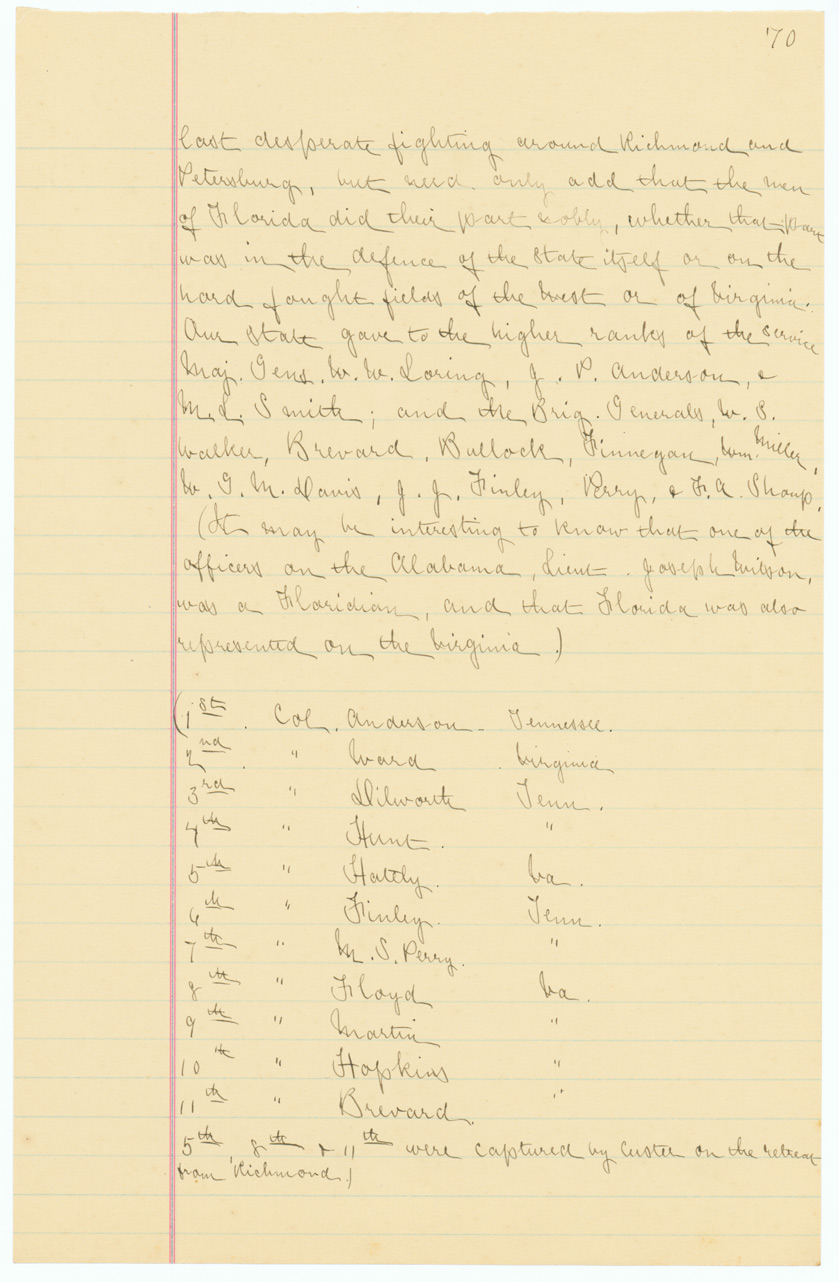 '70
last desperate fighting around Richmond and
Petersburg, but need only add that the men
of Florida did their part nobly, whether that part
was in the defence of the state itself or on the
hard fought fields of the West or of Virginia.
Our state gave to the higher ranks of the service
Maj. Gens. W. W. Loring, J. P. Anderson, &
M. L. Smith; and the Brig. Generals, W. S.
Walker, Brevard, Bullock, Finnegan, Wm. Miller,
W. G. M. Davis, J. J. Finley, Perry, & F. A. Shoup.
(It may be interesting to know that one of the
officers on the Alabama, Lieut. Joseph Wilson,
was a Floridian, and that Florida was also
represented on the Virginia.)
(1st. Col. Anderson - Tennessee.
2nd. " Ward . Virginia
3rd " Dilworth Tenn.
4th " Hunt. "
5th " Hattly. Va.
6th " Finley. Tenn.
7th " M. S. Perry. "
8th " Floyd Va.
9th " Martin "
10th " Hopkins "
11th " Brevard. "
5th, 8th & 11th were captured by Custer on the retreat
from Richmond.)